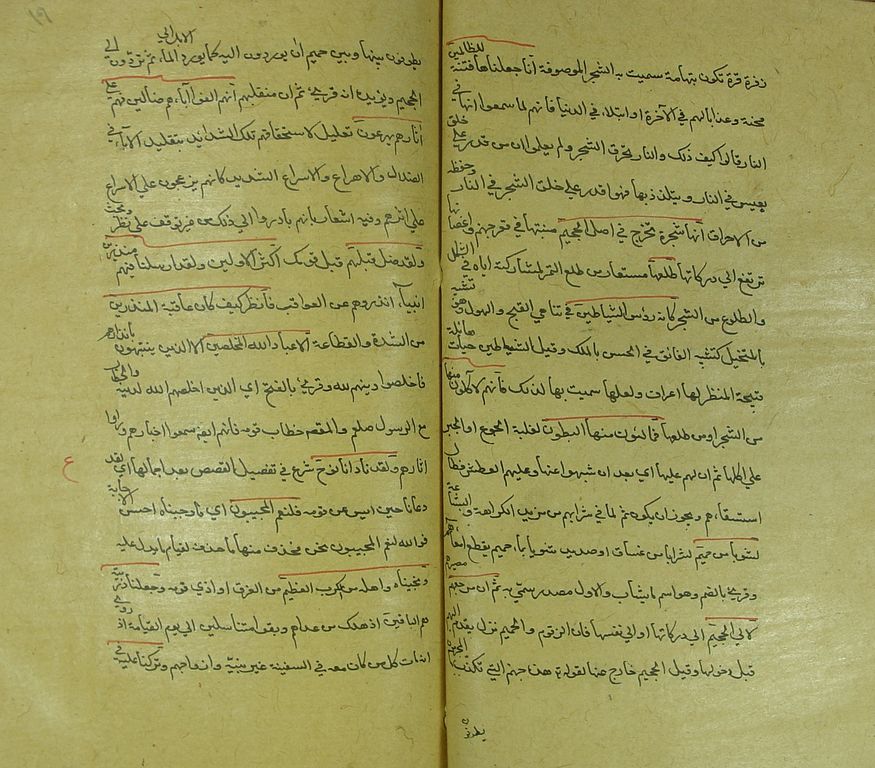 ذفرة مرة تكون بتهامة سميت به الشجرة الموصوفة انا جعلناها فتنة للظالمين
محنة وعذابا لهم في الآخرة او ابتلاء في الدنيا فانهم لما سمعوا انها في
النار قالوا كيف ذلك والنار تحرق الشجر ولم يعلموا ان من قدر على خلق
يعيش في النار ويتلذذ بها فهو اقدر على خلق الشجر في النار وحفظه
من الاحراق انها شجرة تخرج في اصل الجحيم منبتها في قعر جهنم واغصانها
ترتفع الى دركاتها طلعها مستعار من طلع التمر لمشاركته اياه في الشكل
والطلوع من الشجر كانه رؤس الشياطين في تناهي القبح والهول وهو تشبيه
بالمتخيل كتشبيه الفائق في الحسن بالملك وقيل الشياطين حيات هائلة
قبيحة المنظر لها اعراف ولعلها سميت بها لذلك فانهم لاكلون منها
من الشجرة او من طلعها فمالئون منها البطون لغلبة الجوع او الجبر
على اكلها ثم ان لهم عليها اي بعد ان شبعوا منها وغلبهم العطش وطال
استسقاءهم ويجوز ان يكون ثم لما في شرابهم من مزيد الكراهة والبشاعة
لشوبا من حميم لشرابا من غساق او صديد مشوبا بماء حميم يقطع امعاءهم
وقرئ بالضم وهو اسم ما يشاب به والاول مصدر سمي به ثم ان مرجعهم مصيرهم
لالى الجحيم الى دركاتها او الى نفسها فان الزقوم والحميم نزل يقدم اليهم
قبل دخولها وقيل الحميم خارج عنها لقوله تع هذه جهنم التي يكذب بها المجرمون
يطوفون
١٩
يطوفون بينها وبين حميم ان يوردون اليه كما يورد الابل الى الماء ثم يردون الى
الجحيم ويؤيده انه قرئ ثم ان منقلبهم انهم الفوا آباءهم ضالين فهم على
آثارهم يهرعون تعليل لاستحقاقهم تلك الشدائد بتقليد الآباء في
الضلال والاهراع والاسراع الشديد كانهم يزعجون على الاسراع
على اثرهم وفيه اشعار بانهم بادروا الى ذلك من غير توقف على نظر وبحث
ولقد ضل قبلهم قبل قومك اكثر الاولين ولقد ارسلنا فيهم منذرين
انبياء انذروهم من العواقب فانظر كيف كان عاقبة المنذرين
من الشدة والفظاعة الا عباد الله المخلصين الا الذين يتنبهون بانذارهم
فاخلصوا دينهم لله وقرئ بالفتح اي الذين اخلصهم الله لدينه والخطاب
مع الرسول صلعم والمقصد خطاب قومه فانهم ايضا سمعوا اخبارهم وراوا
آثارهم ولقد نادانا نوح شرع في تفصيل القصص بعد اجمالها اي ولقد
دعانا حين ايس من قومه فلنعم المجيبون اي فاجبناه احسن الاجابة
فوالله لنعم المجيبون نحن فحذف منها ما حذف لقيام ما يدل عليه
ونجيناه واهله من الكرب العظيم من الغرق او اذى قومه وجعلنا ذريته
هم الباقين اذ هلك من عداهم وبقوا متناسلين الى يوم القيامة اذ روي
انه مات كل من كان معه في السفينة غير بنيه وازواجهم وتركنا عليه في
ع